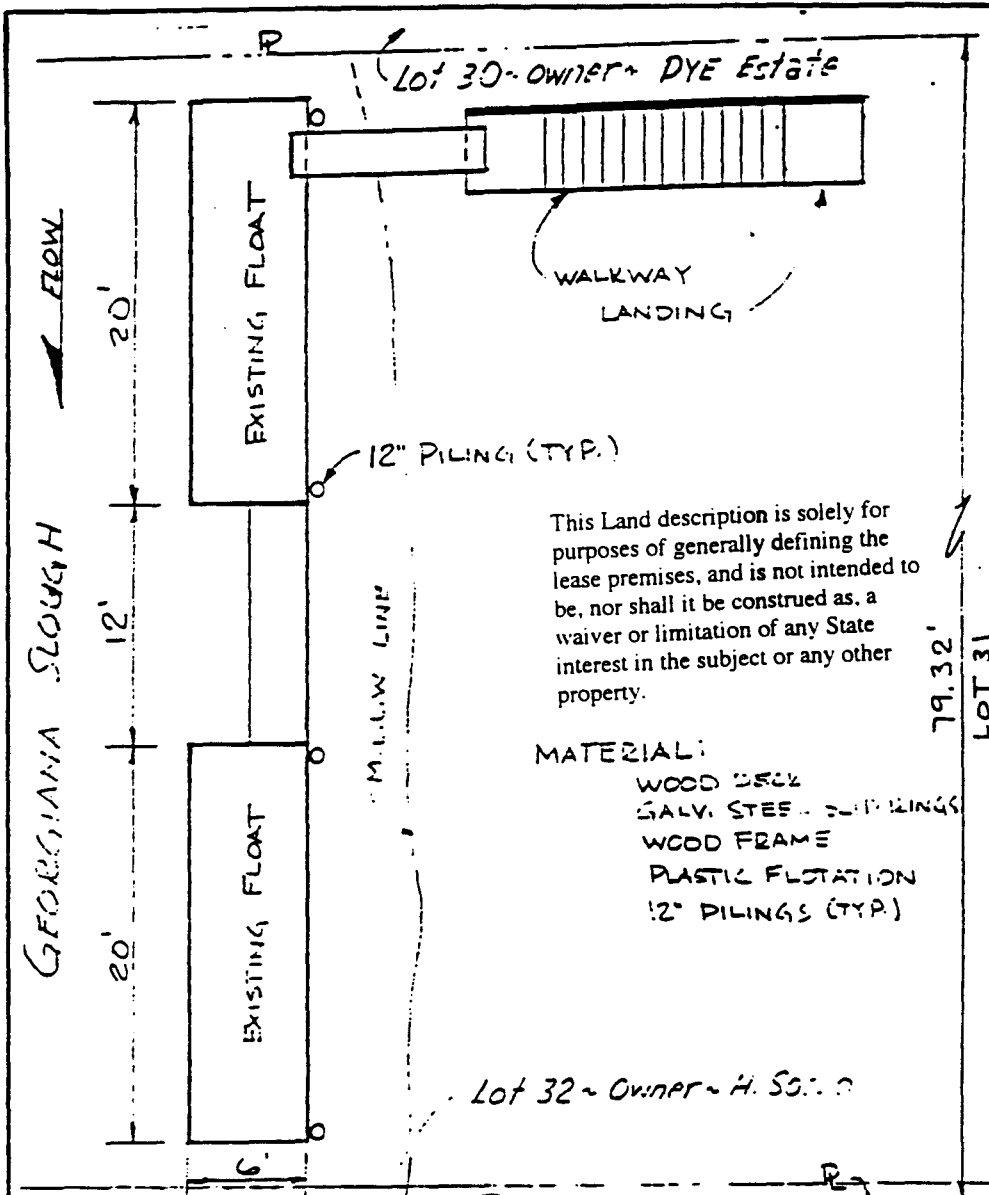 PL
Lot 30 ~ Owner ~ DYE Estate
FLOW
20'
EXISTING FLOAT
WALKWAY
LANDING
12" PILING (TYP.)
GEORGIANA SLOUGH
12'
M.L.L.W LINE
This Land description is solely for
purposes of generally defining the
lease premises, and is not intended to
be, nor shall it be construed as, a
waiver or limitation of any State
interest in the subject or any other
property.
79.32'
LOT 31
MATERIAL:
WOOD DECK
GALV. STEEL
WOOD FRAME
PLASTIC FLOTATION
12" PILINGS (TYP.)
20'
EXISTING FLOAT
Lot 32 ~ Owner ~ H.
6'
PL